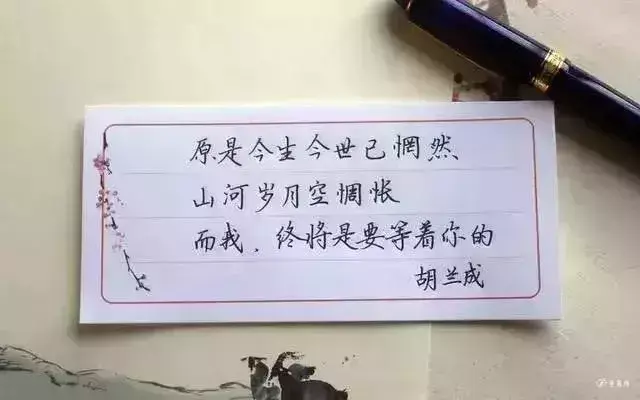 原是今生今世已惘然
山河岁月空惆怅
而我,终将是要等着你的
胡兰成